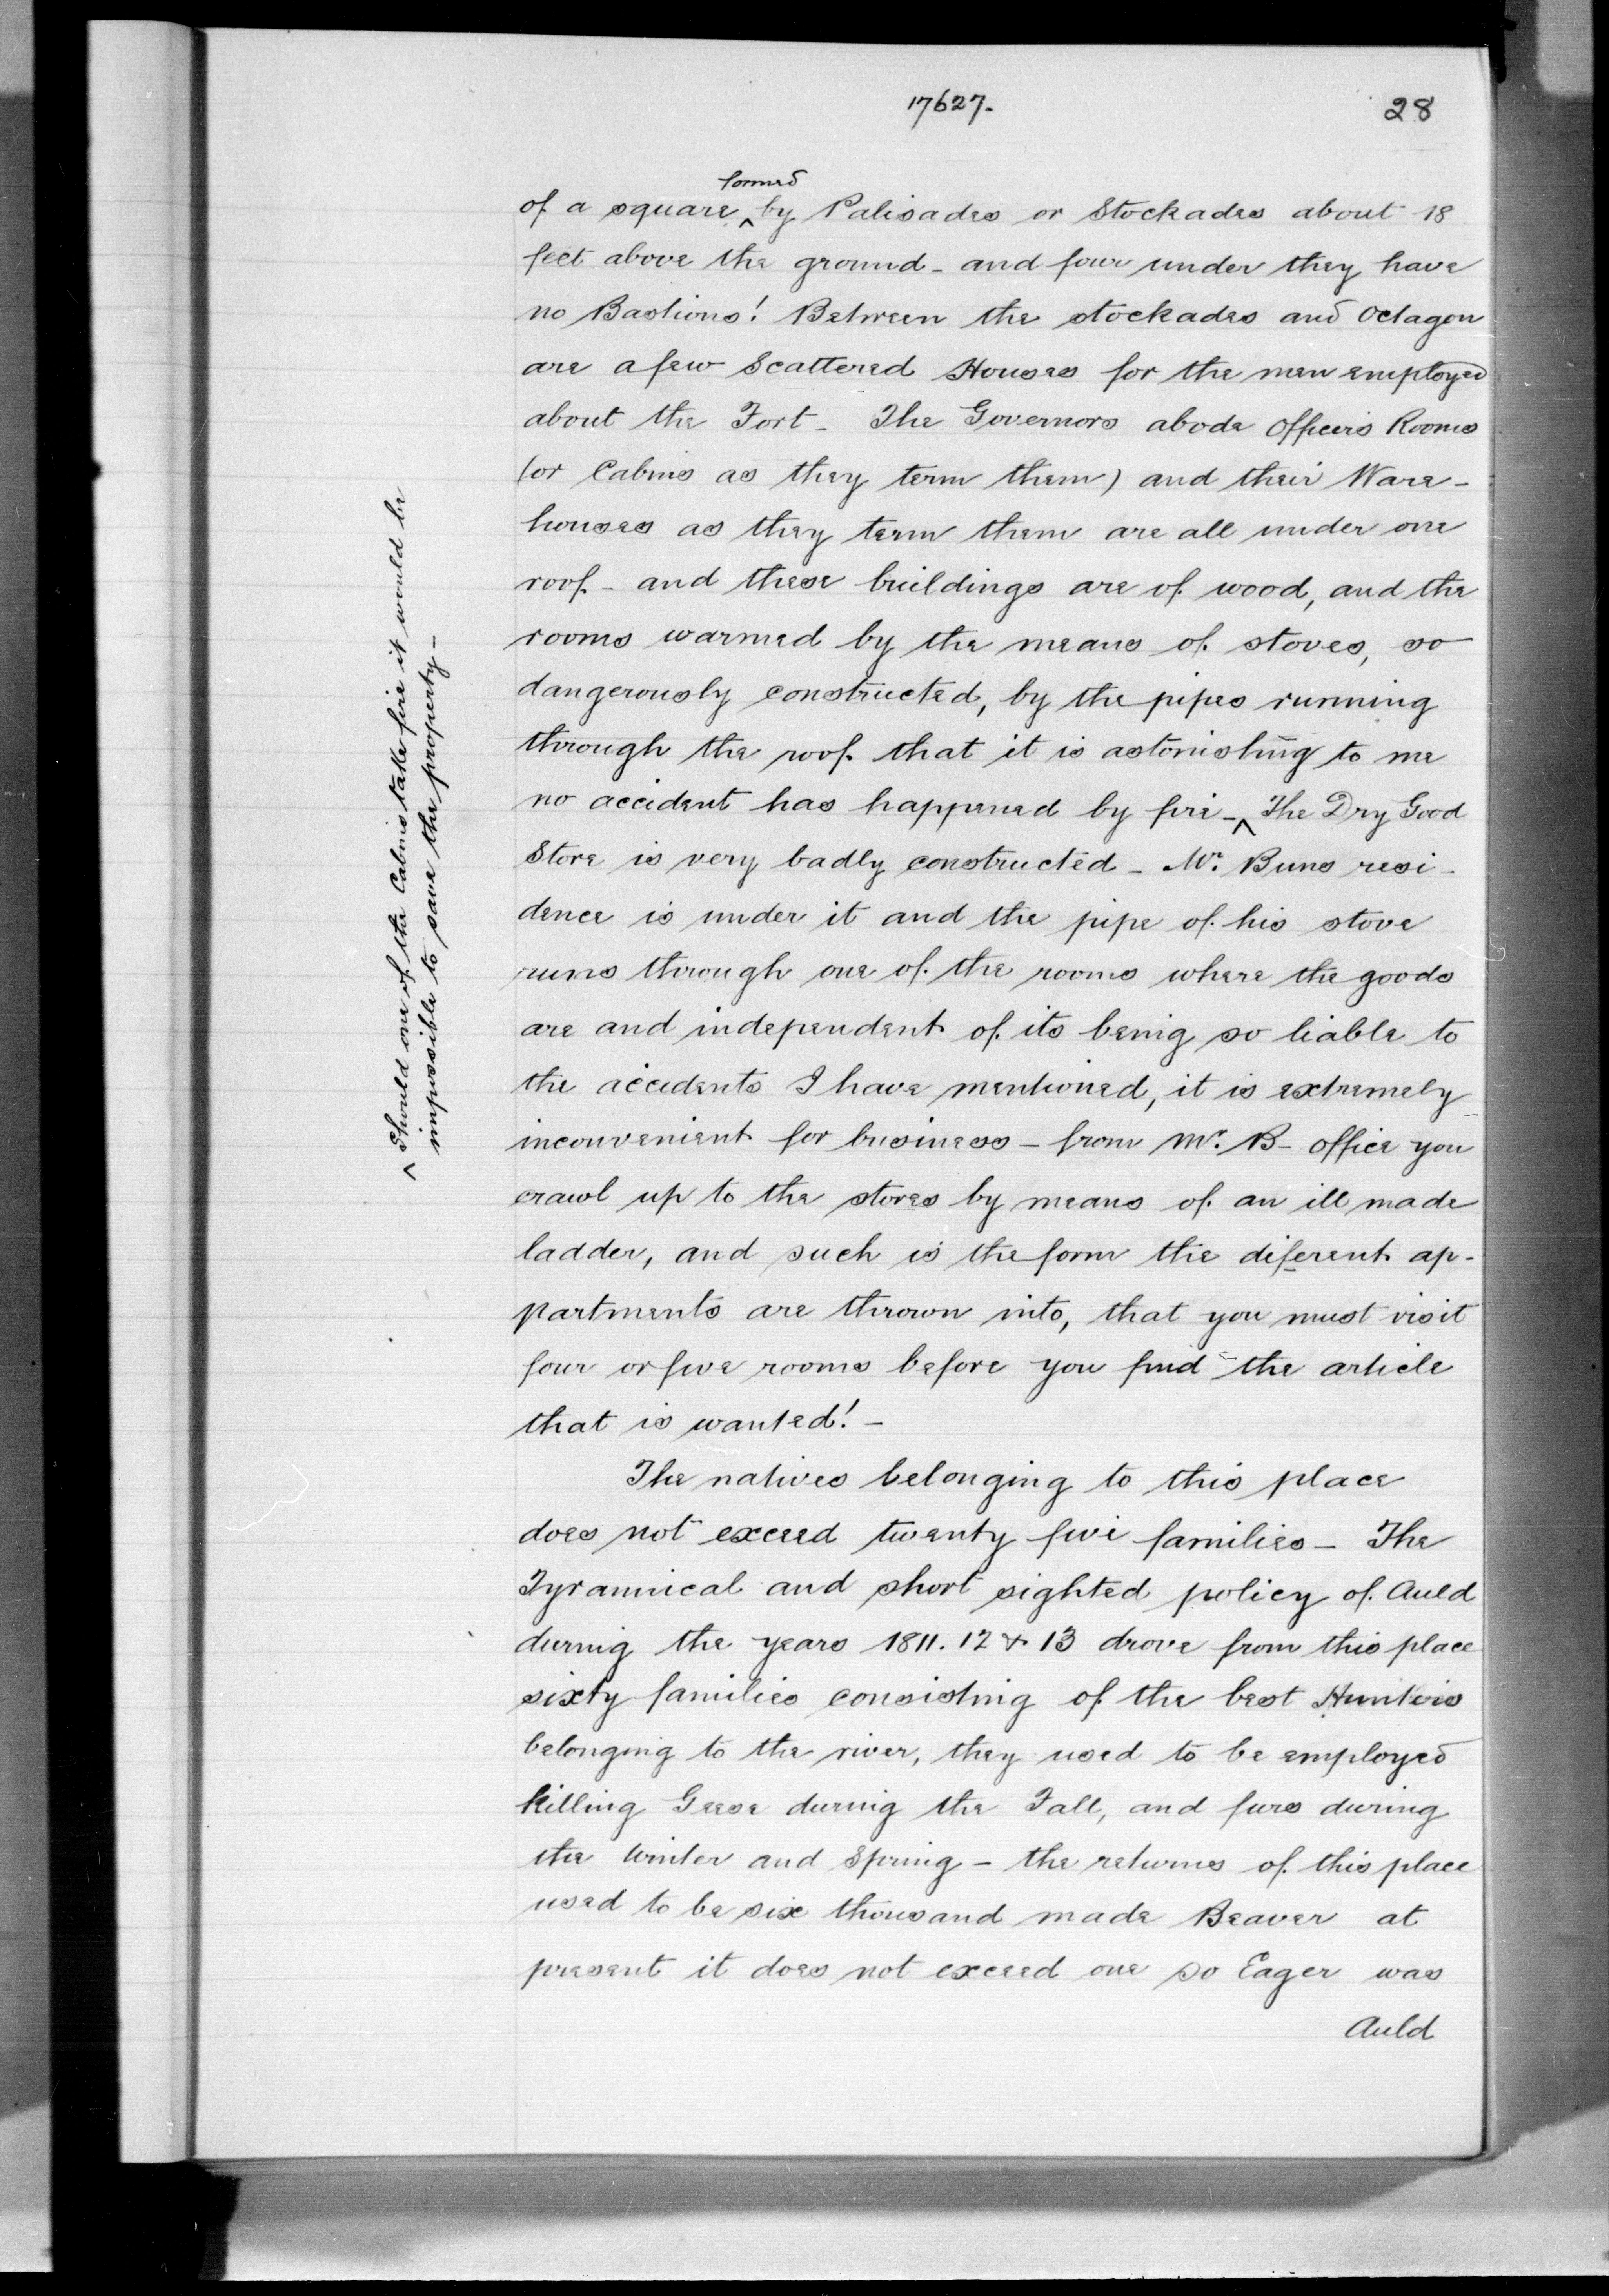 17627.
28
of a square ^formed by Palisades or Stockades about 18
feet above the ground - and four under they have
no Bastions! Between the stockades and Octagon
are a few Scattered Houses for the men employed
about the Fort - The Governors abode Officers Rooms
(or Cabins as they term them) and their Ware-
houses as they term them are all under one
roof - and these buildings are of wood, and the
rooms warmed by the means of stoves, so
dangerously constructed, by the pipes running
through the roof that it is astonishing to me
no accident has happened by fire - ^ The Dry Good
Store is very badly constructed - Mr. Buns resi-
dence is under it and the pipe of his stove
runs through one of the rooms where the goods
are and independent of its being so liable to
the accidents I have mentioned, it is extremely
inconvenient for business - from Mr. B- office you
crawl up to the stores by means of an ill made
ladder, and such is the form the diferent ap-
partments are thrown into, that you must visit
four or five rooms before you find the article
that is wanted! -
The natives belonging to this place
does not exceed twenty five families - The
Tyrannical and short sighted policy of Auld
during the years 1811. 12 & 13 drove from this place
sixty families consisting of the best Hunters
belonging to the river, they used to be employed
killing Geese during the Fall, and furs during
the Winter and Spring - the returns of this place
used to be six thousand made Beaver at
present it does not exceed one so Eager was
Auld
^ Should one of the Cabins take fire it would be
impossible to save the property -